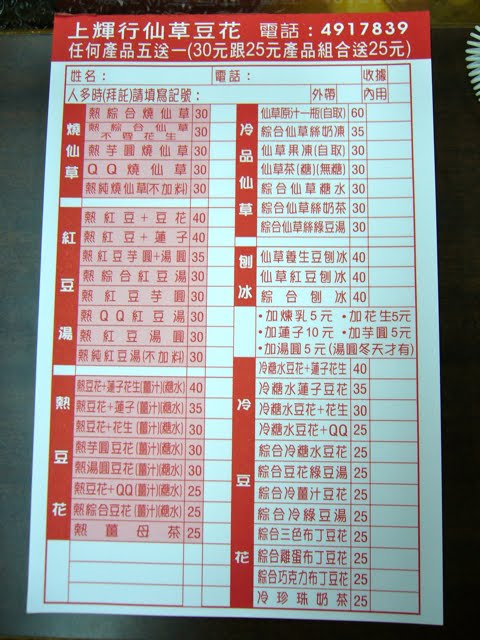 上輝行仙草豆花 電話：4917839
任何產品五送一(30元跟25元產品組合送25元)
姓名： 電話： 收據
人多時(拜託)請填寫記號： 外帶 內用
燒仙草
熱綜合燒仙草 30
熱綜合仙草不要花生 30
熱芋圓燒仙草 30
QQ燒仙草 30
熱純燒仙草(不加料) 30
紅豆湯
熱紅豆+豆花 40
熱紅豆+蓮子 40
熱紅豆芋圓+湯圓 35
熱綜合紅豆湯 30
熱紅豆芋圓 30
熱QQ紅豆湯 30
熱紅豆湯圓 30
熱純紅豆湯(不加料) 30
熱豆花
熱豆花+蓮子花生(薑汁)(糖水) 40
熱豆花+蓮子(薑汁)(糖水) 35
熱豆花+花生(薑汁)(糖水) 30
熱芋圓豆花(薑汁)(糖水) 30
熱湯圓豆花(薑汁)(糖水) 30
熱豆花+QQ(薑汁)(糖水) 25
熱綜合豆花(薑汁)(糖水) 25
熱薑母茶 25
冷品仙草
仙草原汁一瓶(自取) 60
綜合仙草絲奶凍 35
仙草果凍(自取) 30
仙草茶(糖)(無糖) 30
綜合仙草糖水 30
綜合仙草絲奶茶 30
綜合仙草絲綠豆湯 30
刨冰
仙草養生豆刨冰 40
仙草紅豆刨冰 40
綜合刨冰 40
•加煉乳5元 •加花生5元
•加蓮子10元 •加芋圓5元
•加湯圓5元(湯圓冬天才有)
冷豆花
冷糖水豆花+蓮子花生 40
冷糖水蓮子豆花 35
冷糖水豆花+花生 30
冷糖水豆花+QQ 25
綜合冷糖水豆花 25
綜合豆花綠豆湯 25
綜合冷薑汁豆花 25
綜合冷綠豆湯 25
綜合三色布丁豆花 25
綜合雞蛋布丁豆花 25
綜合巧克力布丁豆花 25
冷珍珠奶茶 25